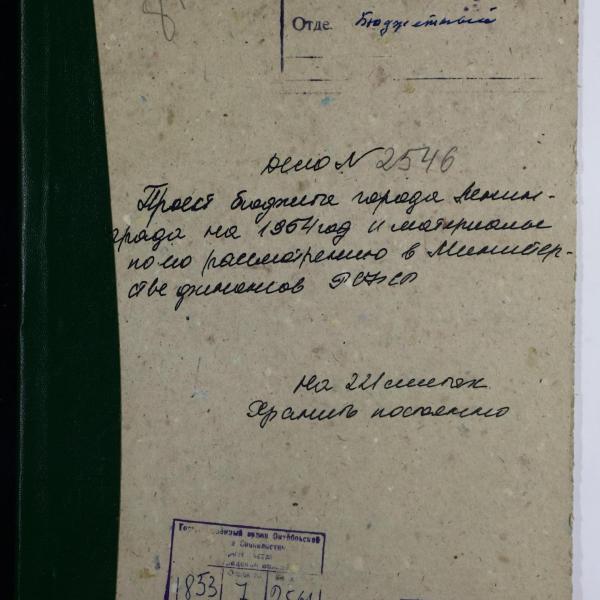 Отде. Бюджетный
Дело N 2546
Проект бюджета города Ленин-
града на 1954 год и материалы
по его рассмотрению в Министер-
стве финансов РСФСР
На 221 листах
Хранить постоянно
архив Октябрьской
и Социалистич
853 7